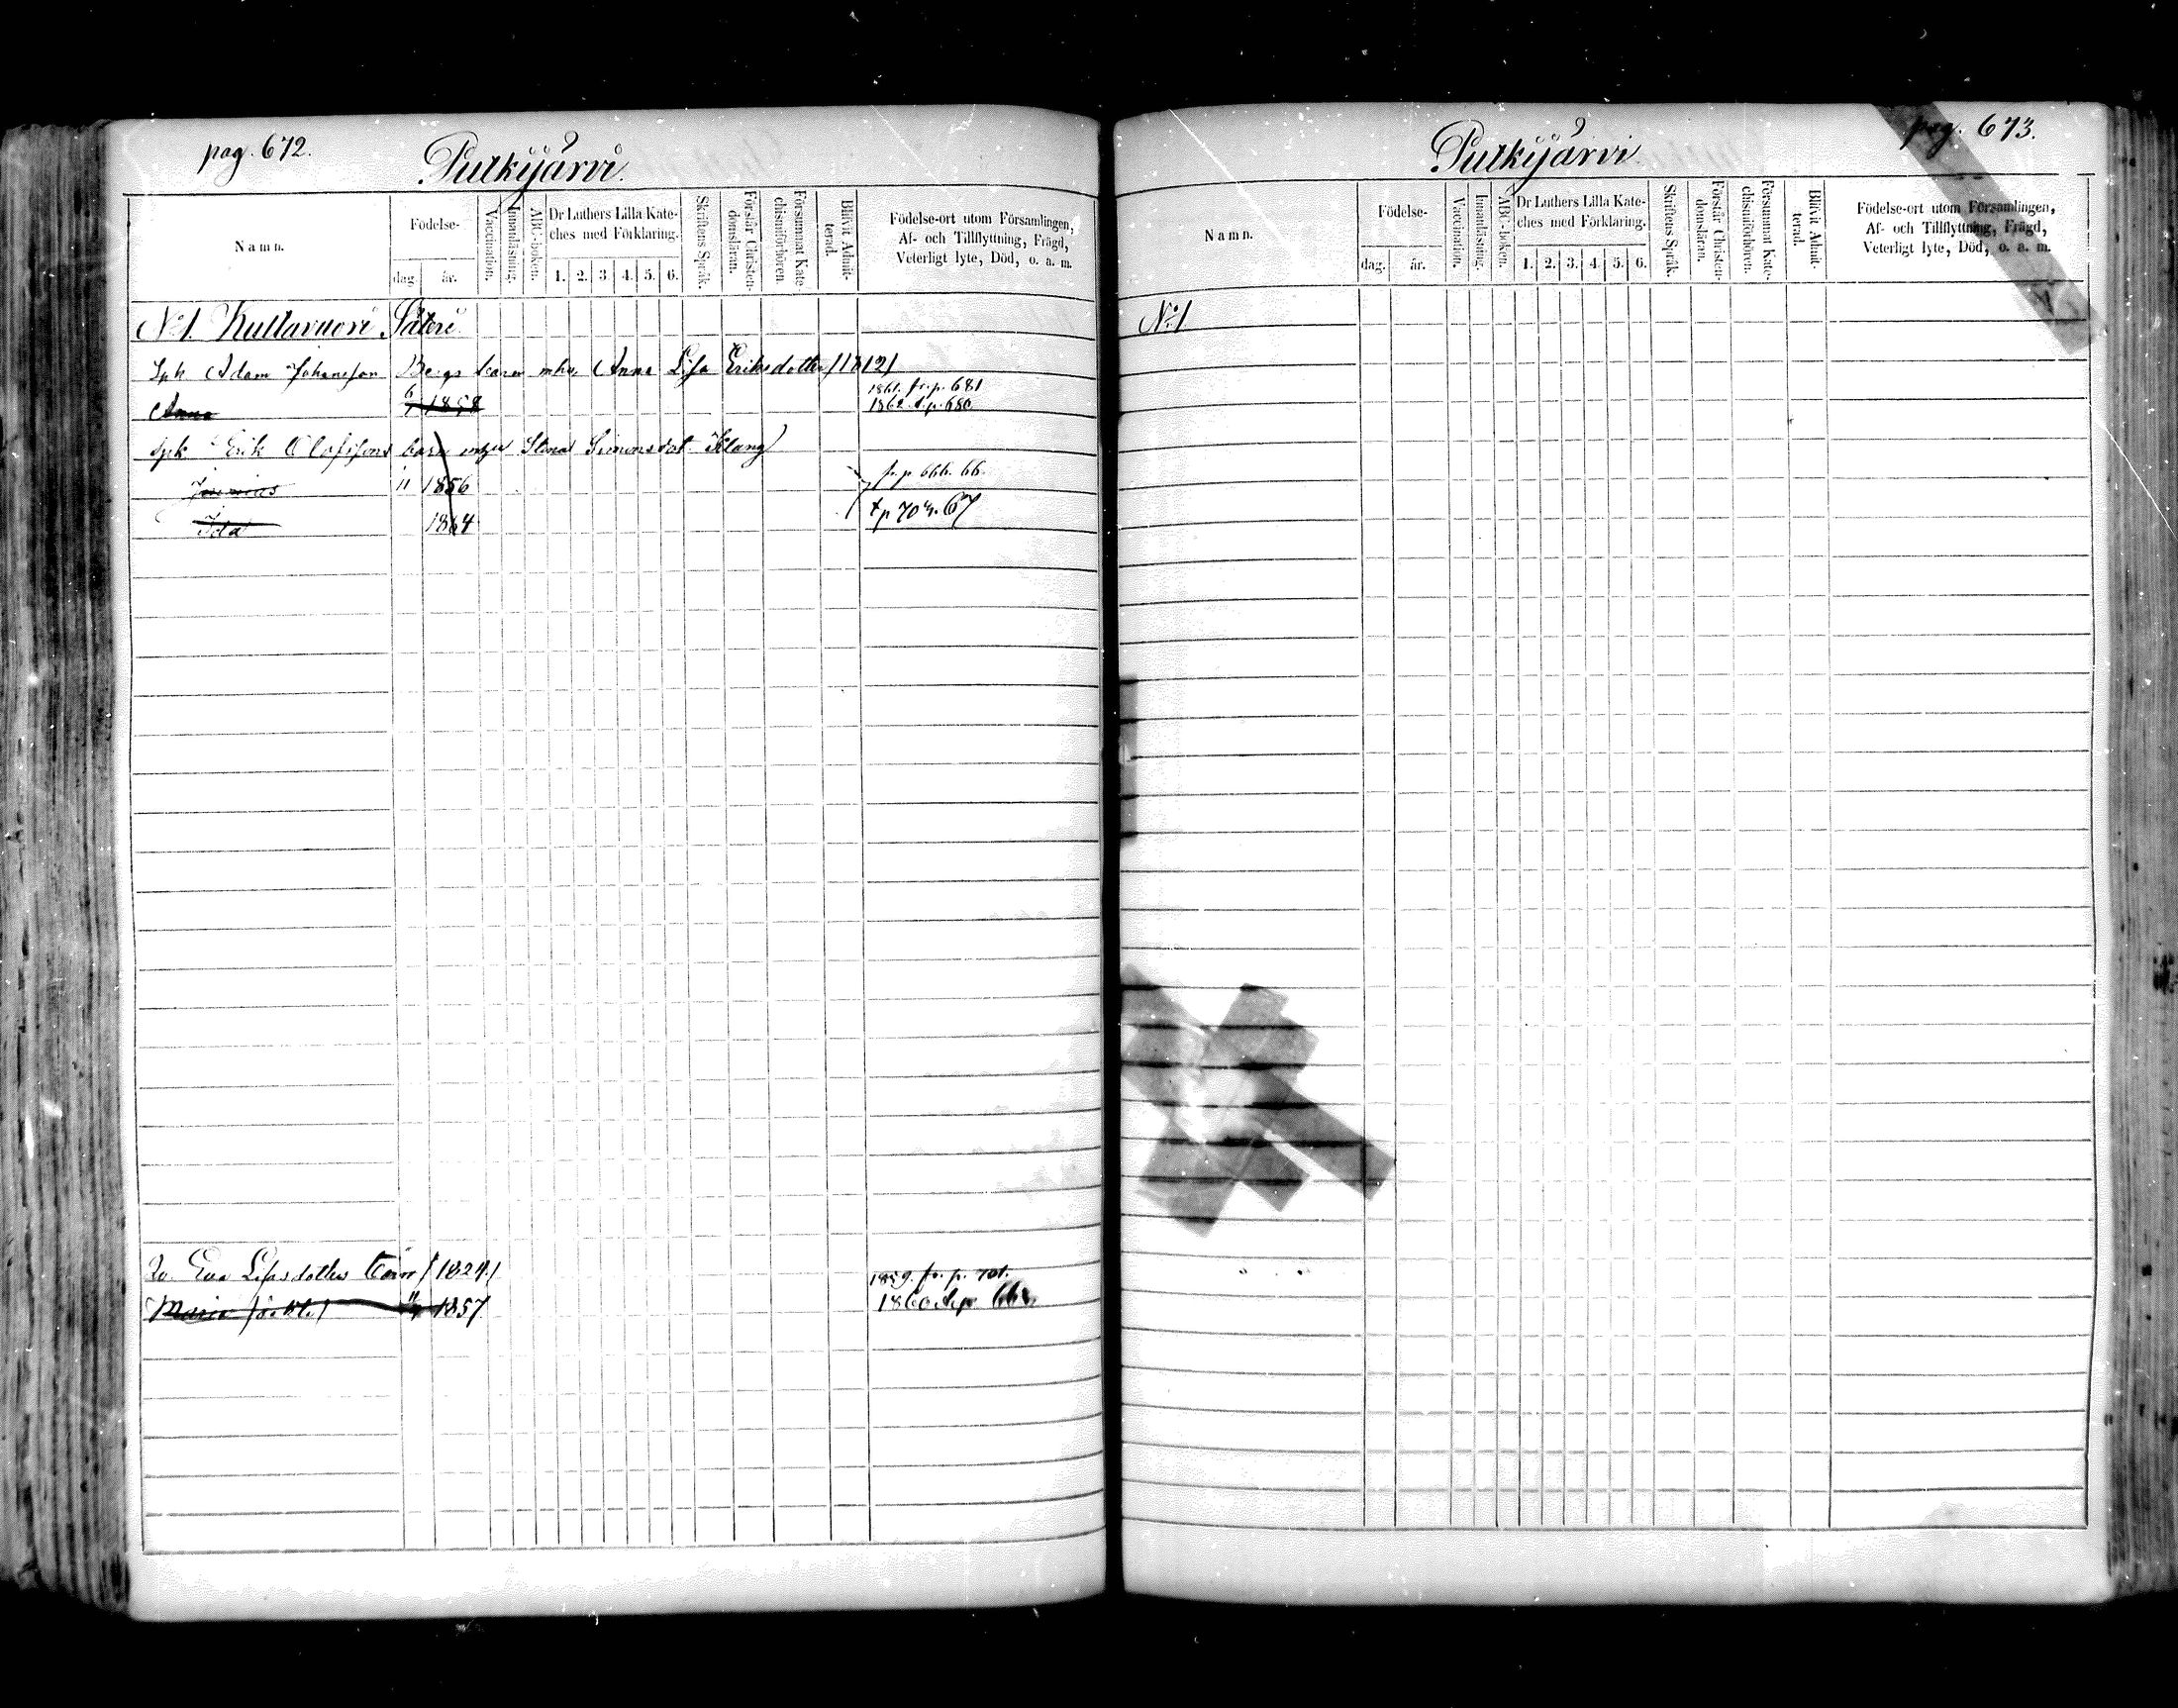 pag. 672.
Putkijärvi.
Namn.
Födelse-
dag. år.
Vaccination.
Innanläsning.
ABC-boken.
Dr Luthers Lilla Kate-
ches med Förklaring.
1. 2. 3. 4. 5. 6.
Skriftens Språk.
Förstår Christen-
domsläran.
Försummat Kate-
chismiförhören.
Blifvit Admit-
terad.
Födelse-ort utom Församlingen,
Af- och Tillflyttning, Frägd,
Veterligt lyte, Död, o. a. m.
No 1. Kuttavuori Säteri.
Spk Adam Johansson Bergs barn mhu Anna Lisa Eriksdotter /1812/
1861. fr. p. 681
Anna 1858 1862. t. p. 680
Spk Erik Olofssons barn mhu Simonsdot. Klang
11 1856 fr. p. 666. 66.
Ida 1864 t p 704. 67
Eva Lisasdotters barn /1824/
1859. fr. p. 701.
Maria 1857 1860 t. p.
pag. 673.
Putkijärvi
Namn.
Födelse-
dag. år.
Vaccination.
Innanläsning.
ABC-boken.
Dr Luthers Lilla Kate-
ches med Förklaring.
1. 2. 3. 4. 5. 6.
Skriftens Språk.
Förstår Christen-
domsläran.
Försummat Kate-
chismiförhören.
Blifvit Admit-
terad.
Födelse-ort utom Församlingen,
Af- och Tillflyttning, Frägd,
Veterligt lyte, Död, o. a. m.
No 1